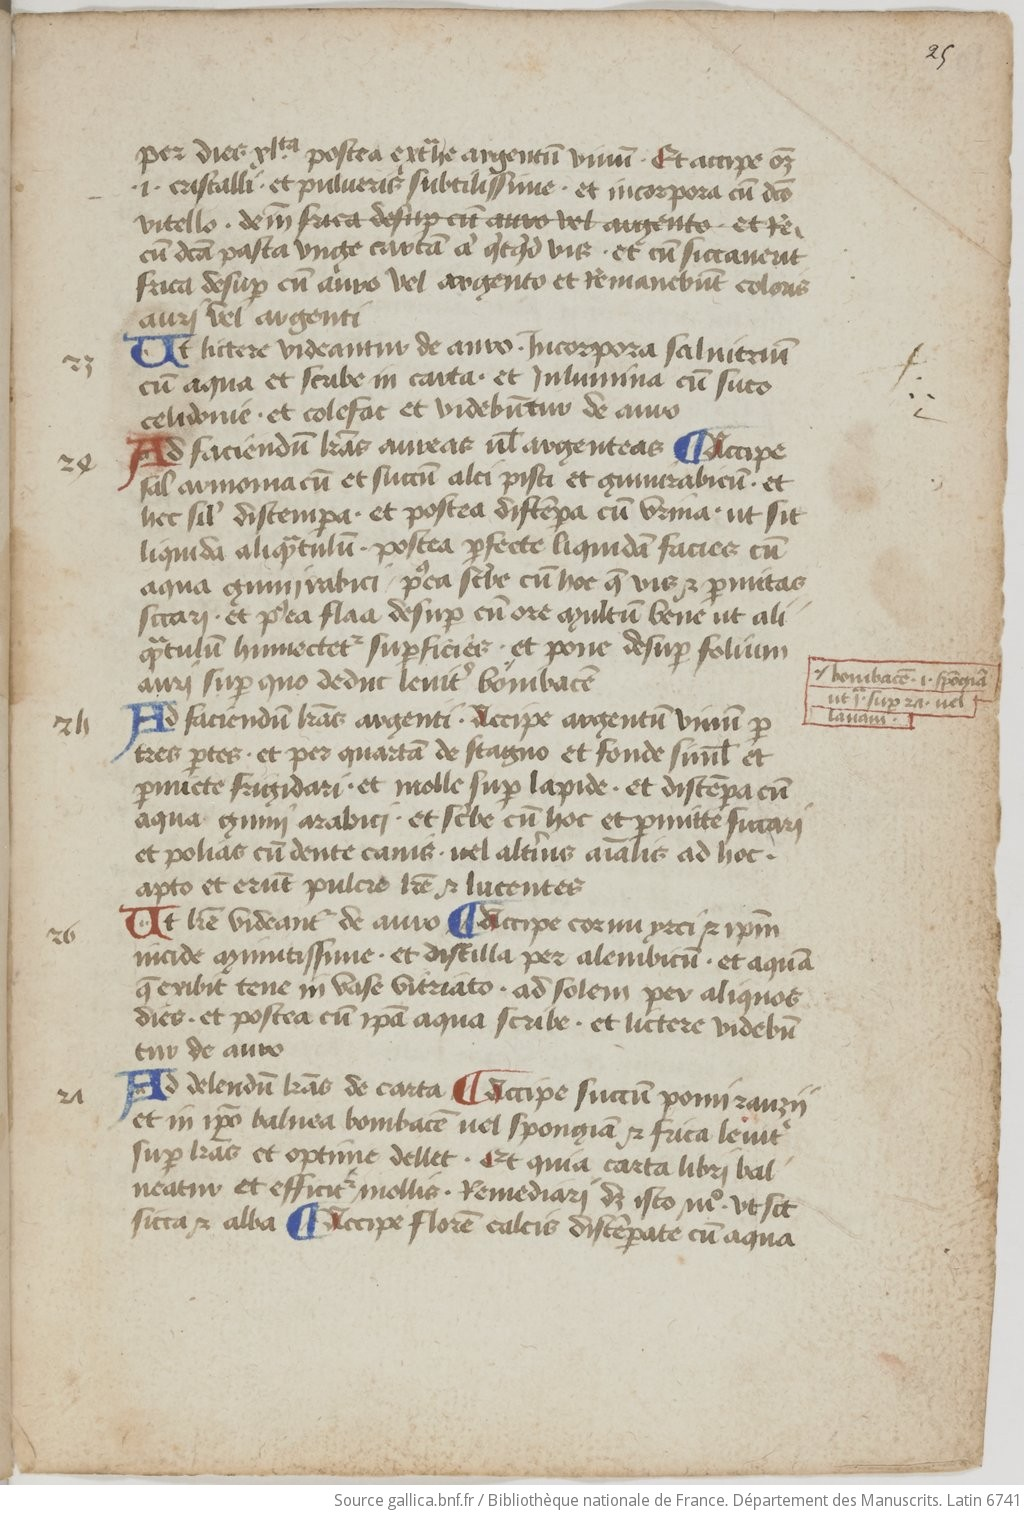 25
per dies xl.ta postea ext͛he argentū vivū · Et accipe oz̄
· 1 · cristalli · et pulveriz̧ subtilissime · et incorpora cū dc̄o
vitello · dem̄ frica desup̱ cū auro vel argento · et
cū dc̄a pasta unge cartā vis · et cū siccaverit
frica desup̱ cū auro vel argento et Remanebūt coloris
aurj vel argenti
23
Ut lictere videantur de auro · Incorpora salnitriū
cū aqua et scribe in carta · et Inlumina cū suco
celidonie · et colefac et videbūtur de auro
24
Ad faciendū lr̄as aureas ul̄ argenteas ¶ Accipe
sal armoniacū et succū alei pisti et gumirabicū · et
hec sil̛ distempa̱ · et postea distēpa̱ cū Urina · ut sit
liquida aliqͣtulū · postea ꝑfecte liquidā facies cū
aqua gūmirabici pꝰea sc̛be cū hoc q̄ vis ⁊ ꝑmitas
siccari · et pꝰea flaa desuꝑ cū ore multū bene ut ali
qͣtulū humectet᷑ suꝑficies · et pone desuꝑ folium
aurj suꝑ quo deduc levit̛ bōmbacē
⁊ bombacē · i · spōgiā
ut · supra · vel
lanam ·
25
Ad faciendū lr̄as argenti · Accipe argentū vivū ꝑ
tres ꝑtes · et per quartā de stagno et fonde simul̄ et
ꝑmicte frigidari · et molle suꝑ lapide · et distēꝑa cū
aqua gumj arabicj · et sc̛be cū hoc et ꝑmitte siccarj
et polias cū dente canis · vel alt̛ius aīalis ad hoc ·
apto et erūt pulcre lr̄e ⁊ lucentes
26
Ut lr̄e videant᷑ de auro ¶ Accipe cornu yrci ⁊ ip̄m
incide minutissime · et distilla per alembicū · et aquā
q̄ exibit tene in vase vitriato · ad solem per aliquos
dies · et postea cū ip̄a aqua scribe · et lictere videbū
tur de auro
27
Ad delendū lr̄as de carta ¶ Accipe succū pomi ranzij
et in ip̄o balnea bombacē vel spongiā ⁊ frica levit̛
suꝑ lr̄as et optime dellet · Et quia carta libri bal
neatur et efficit᷑ mollis · Remediarj dz̄ isto mͦ · ut sit
sicca ⁊ alba ¶ Accipe florē calcis distēꝑate cū aqua
Source gallica.bnf.fr / Bibliothèque nationale de France. Département des Manuscrits. Latin 6741